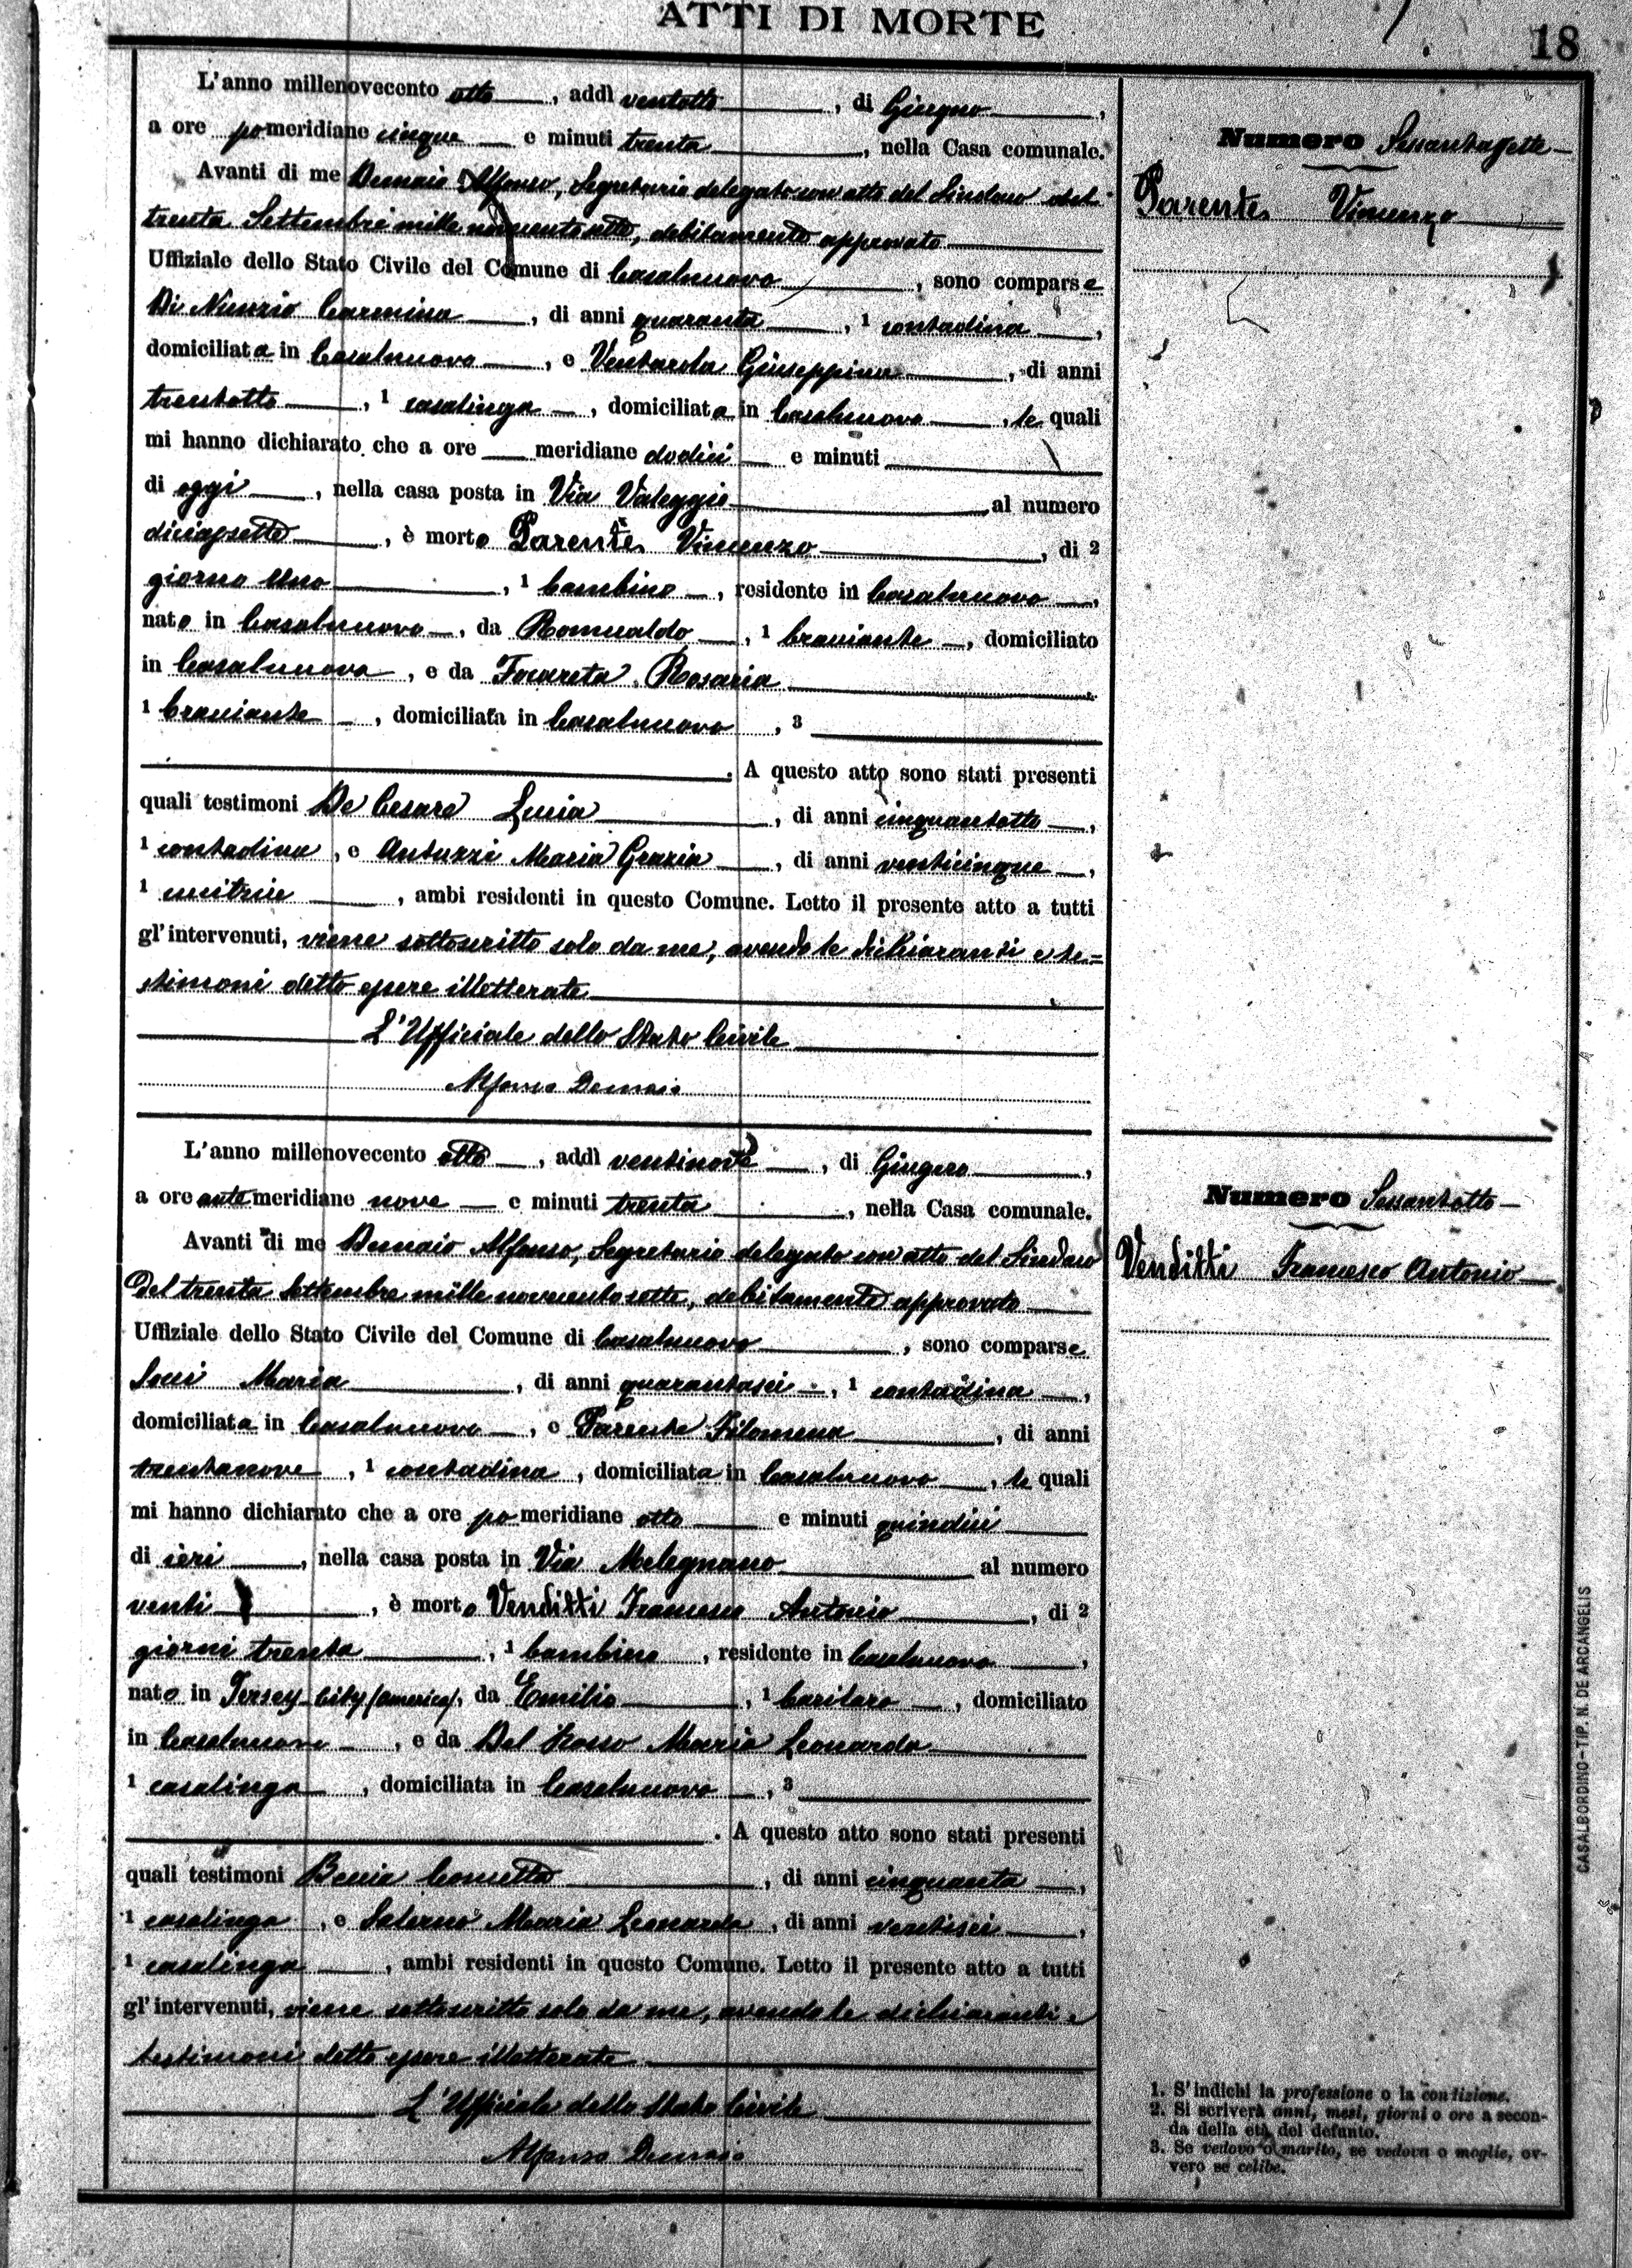 ATTI DI MORTE
18
L'anno millenovecento otto, addì ventotto, di Giugno,
a ore pomeridiane cinque e minuti trenta, nella Casa comunale.
Avanti di me Demaio Alfonso, Segretario delegato con atto del Sindaco del
trenta Settembre mille novecento sette, debitamente approvato
Uffiziale dello Stato Civile del Comune di Casalnuovo, sono comparse
Di Nunzio Carmina, di anni quaranta, 1 contadina,
domiciliata in Casalnuovo, e Ventarola Giuseppina, di anni
trentotto, 1 casalinga, domiciliata in Casalnuovo, le quali
mi hanno dichiarato che a ore meridiane dodici e minuti
di oggi, nella casa posta in Via Valeggio al numero
diciassette, è morto Parente Vincenzo, di 2
giorno uno, 1 bambino, residente in Casalnuovo,
nato in Casalnuovo, da Romualdo, 1 bracciante, domiciliato
in Casalnuovo, e da Focareta Rosaria
1 bracciante, domiciliata in Casalnuovo, 3
. A questo atto sono stati presenti
quali testimoni De Cesare Lucia, di anni cinquantotto,
1 contadina, e Antuzzi Maria Grazia, di anni venticinque,
1 cucitrice, ambi residenti in questo Comune. Letto il presente atto a tutti
gl'intervenuti, viene sottoscritto solo da me, avendo le dichiaranti e te=
stimoni detto essere illetterate
L'Ufficiale dello Stato Civile
Alfonso Demaio
Numero Sessantasette
Parente Vincenzo
L'anno millenovecento otto, addì ventinove, di Giugno,
a ore antemeridiane nove e minuti trenta, nella Casa comunale.
Avanti di me Demaio Alfonso, Segretario delegato con atto del Sindaco
del trenta Settembre mille novecento sette, debitamente approvato
Uffiziale dello Stato Civile del Comune di Casalnuovo, sono comparse
Succi Maria, di anni quarantasei, 1 contadina,
domiciliata in Casalnuovo, e Parente Filomena, di anni
trentanove, 1 contadina, domiciliata in Casalnuovo, le quali
mi hanno dichiarato che a ore pomeridiane otto e minuti quindici
di ieri, nella casa posta in Via Melegnano al numero
venti, è morto Venditti Francesco Antonio, di 2
giorni trenta, 1 bambino, residente in Casalnuovo,
nato in Jersey City (America), da Emilio, 1, domiciliato
in Casalnuovo, e da Del Rosso Maria Leonarda
1 casalinga, domiciliata in Casalnuovo, 3
. A questo atto sono stati presenti
quali testimoni Concetta, di anni cinquanta,
1 casalinga, e Salerno Maria Leonarda, di anni ventisei,
1 casalinga, ambi residenti in questo Comune. Letto il presente atto a tutti
gl'intervenuti, viene sottoscritto solo da me, avendo le dichiaranti e
testimoni detto essere illetterate
L'Ufficiale dello Stato Civile
Alfonso Demaio
Numero Sessantotto
Venditti Francesco Antonio
1. S'indichi la professione o la condizione.
2. Si scriverà anni, mesi, giorni o ore a secon-
da della età del defunto.
3. Se vedovo o marito, se vedova o moglie, ov-
vero se celibe.
CASALBORDINO - TIP. N. DE ARCANGELIS